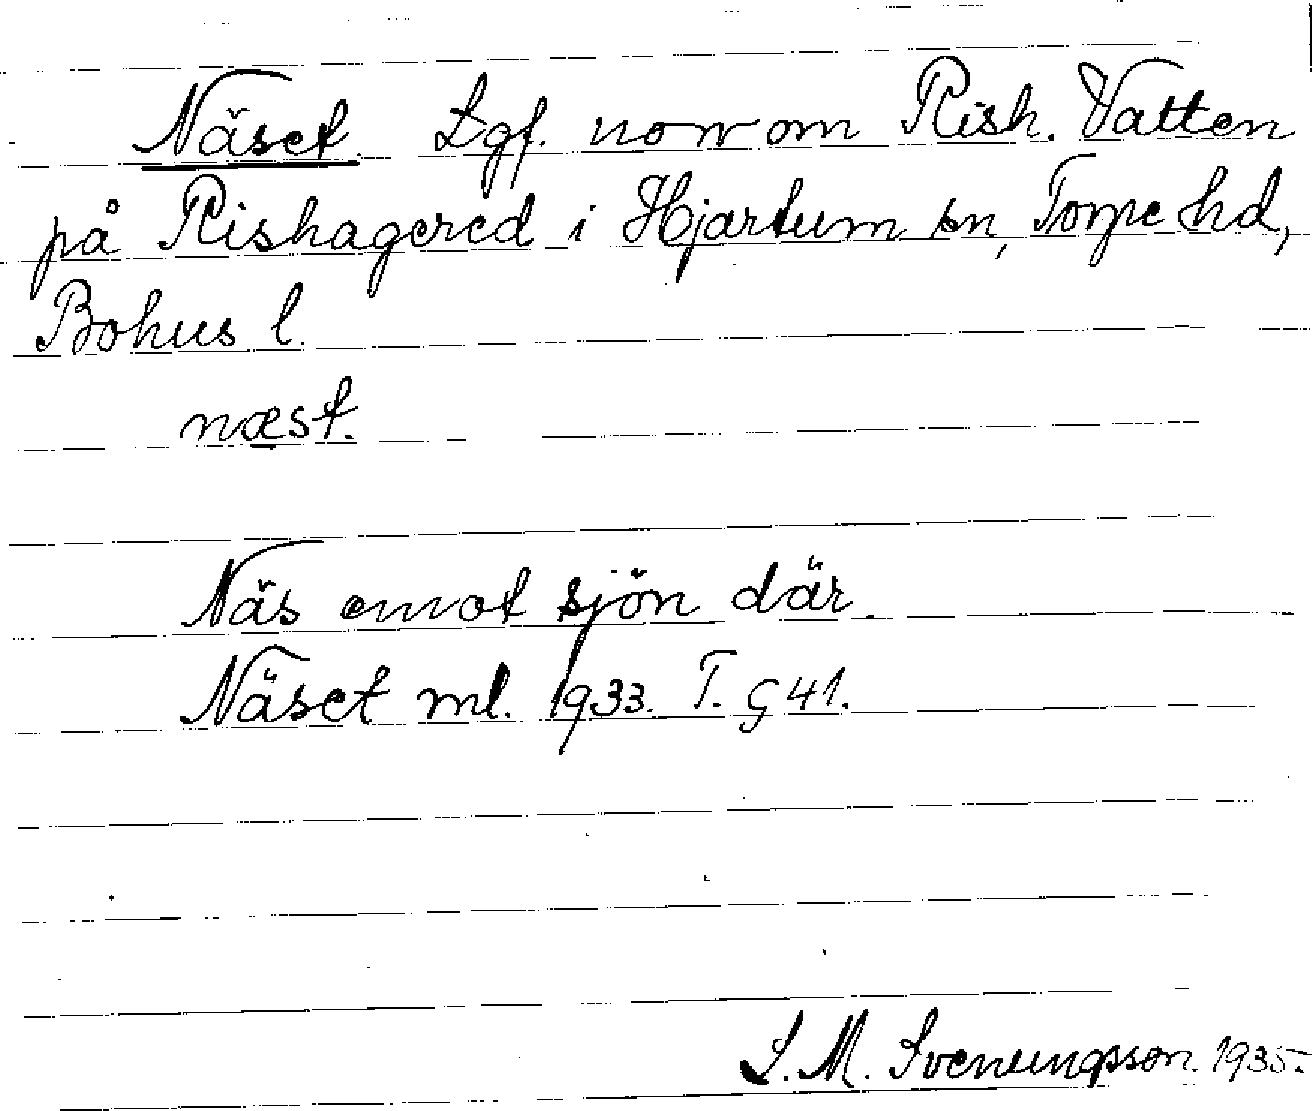 Näset Lgf. norr om Rish. Vatten
på Rishagered i Hjartum sn, Torpe hd,
Bohus l.
næst.
Näs emot sjön där.
Näset ml. 1933. T. G 41.
S. M. Svenungsson. 1935.